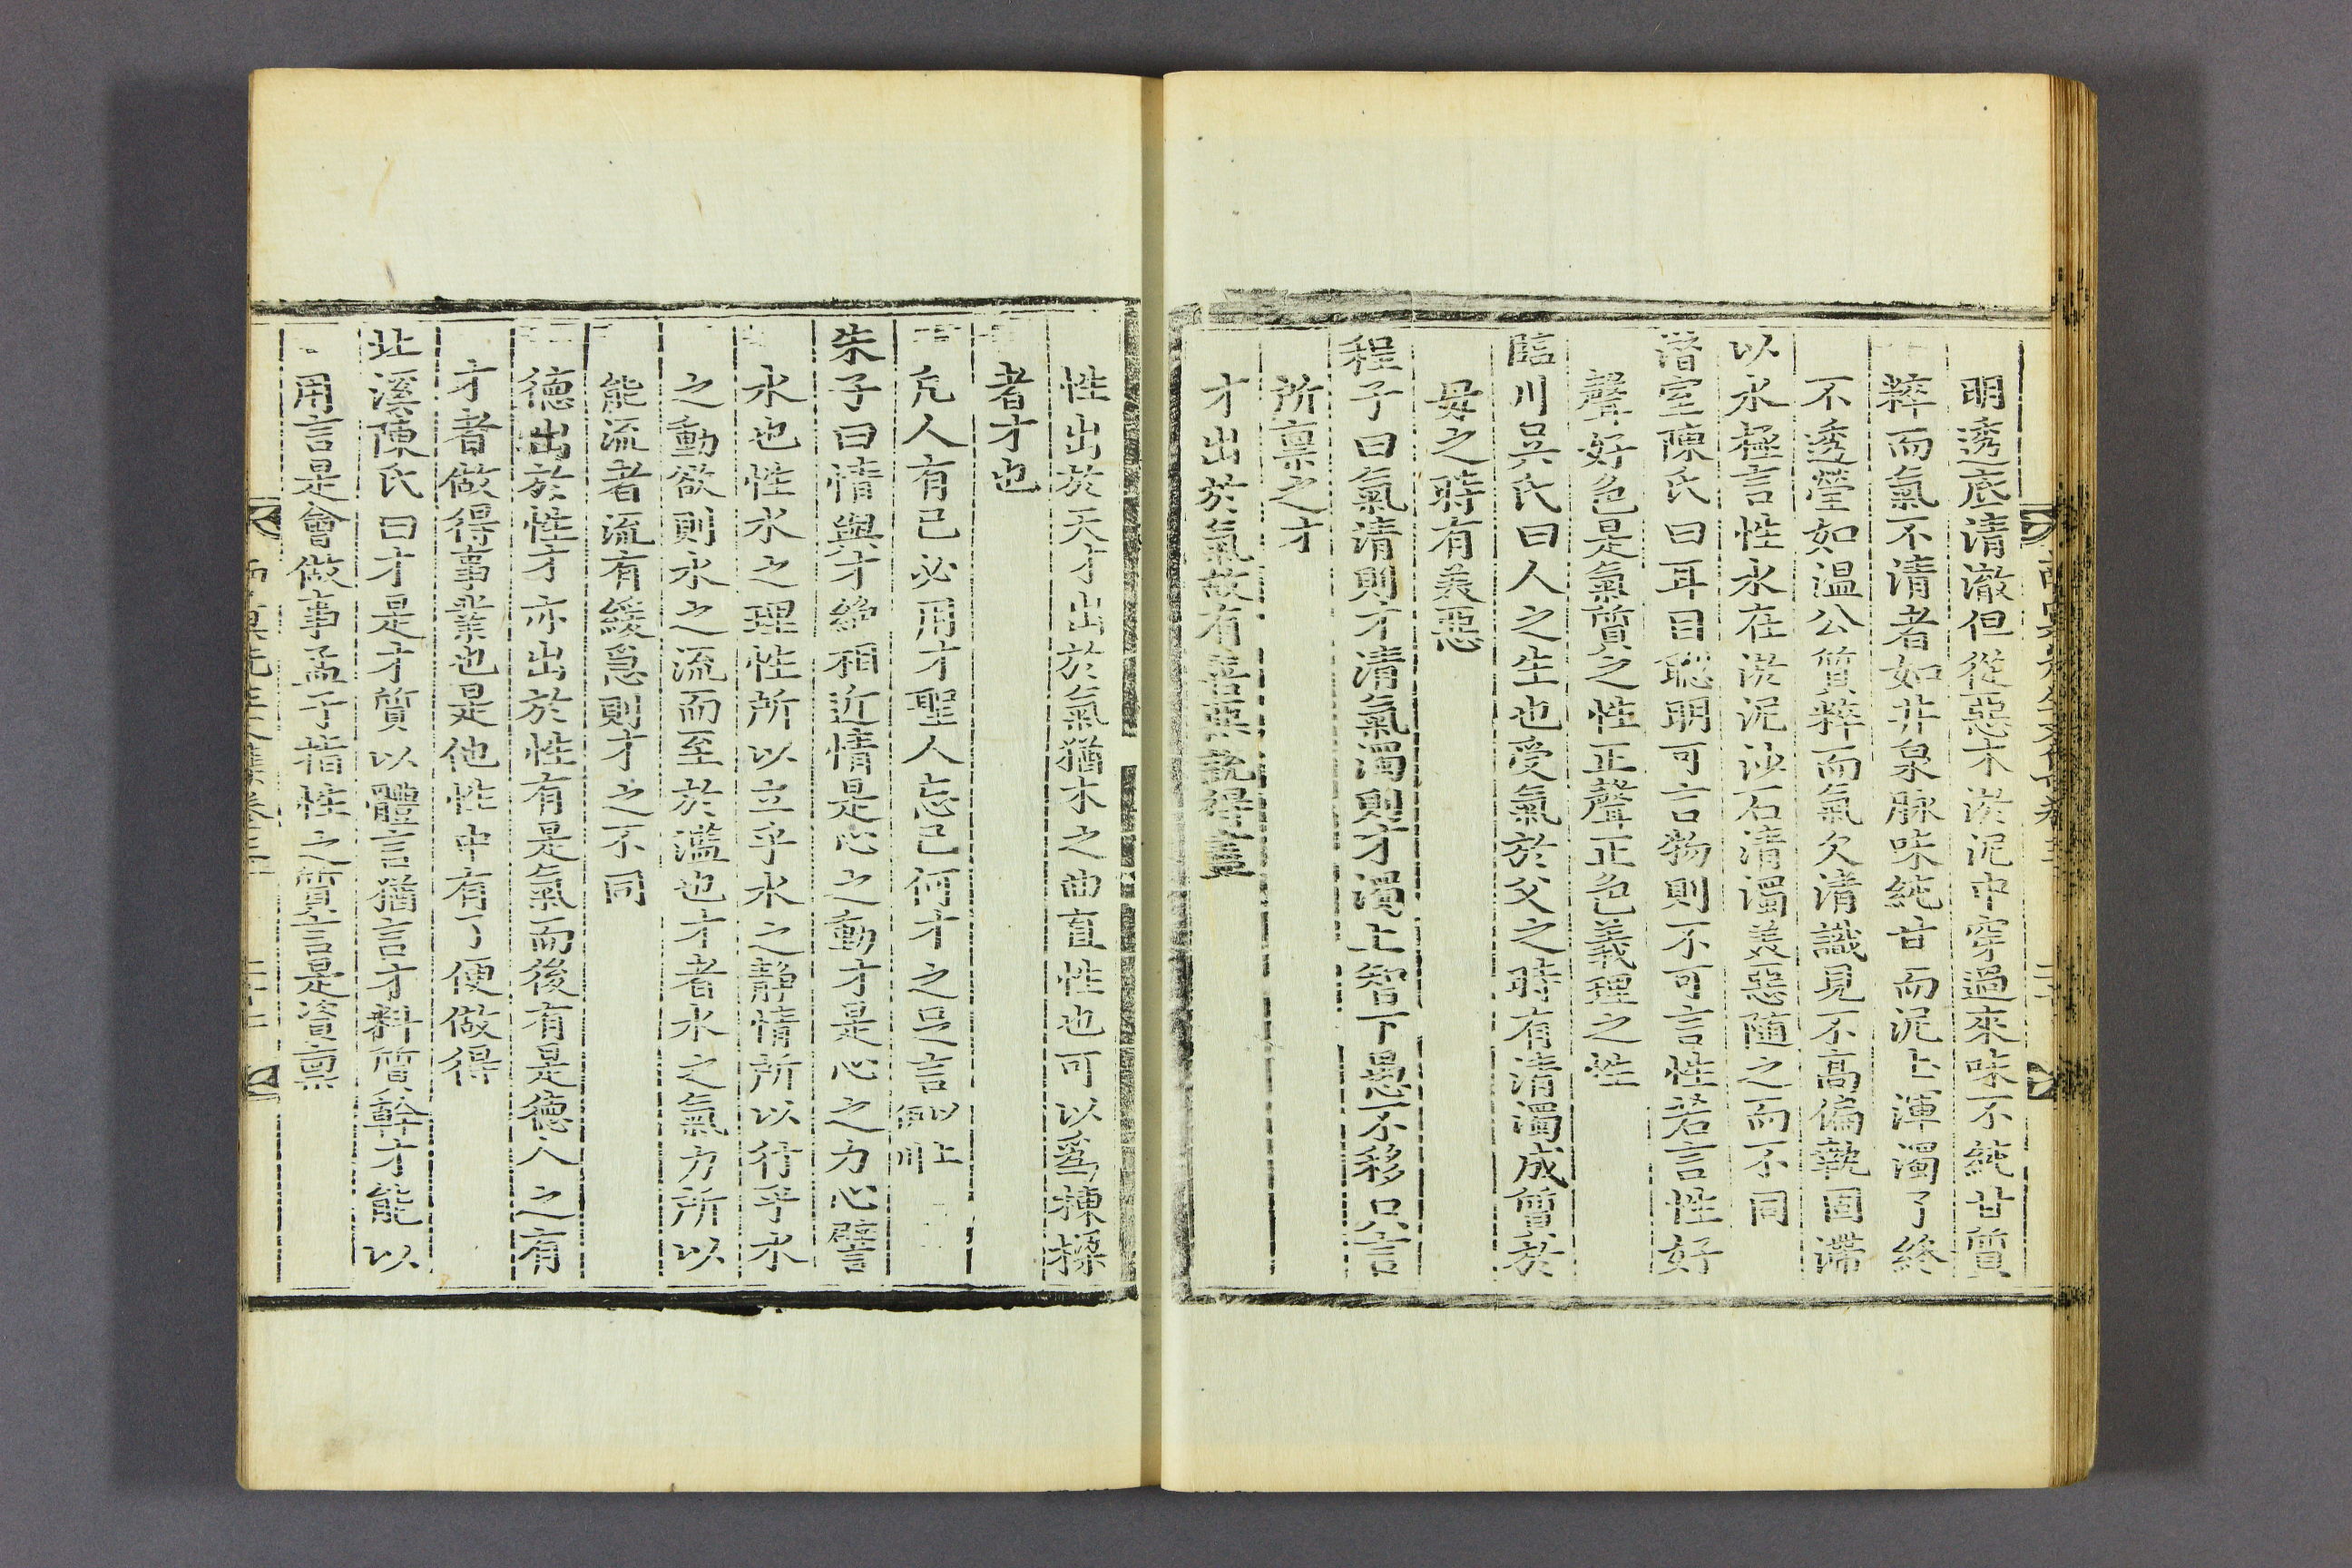 明透底清澈但從惡木淤泥中穿過來味不純甘質
粹而氣不清者如井泉脉味純甘而泥上渾濁了終
不透瑩如溫公質粹而氣欠清識見不高偏執固滯
以水極言性水在淤泥沙石清濁美惡隨之而不同
潛室陳氏曰耳目聡明可言物則不可言性若言性好
聲好色是氣質之性正聲正色義理之性
臨川吳氏曰人之生也受氣於父之時有清濁成質於
母之時有美惡
程子曰氣清則才清氣濁則才濁上智下愚不移只言
所禀之才
才出於氣故有善惡說得盡
性出於天才出於氣猶木之曲直性也可以爲棟樑
者才也
凡人有已必用才聖人忘已何才之足言以上伊川
朱子曰情與才絶相近情是心之動才是心之力心譬
水也性水之理性所以立乎水之静情所以行乎水
之動欲則水之流而至於濫也才者水之氣力所以
能流者流有緩急則才之不同
德出於性才亦出於性有是氣而後有是德人之有
才者做得事業也是他性中有了便做得
北溪陳氏曰才是才質以體言猶言才料質幹才能以
用言是會做事孟子指性之質言是資禀